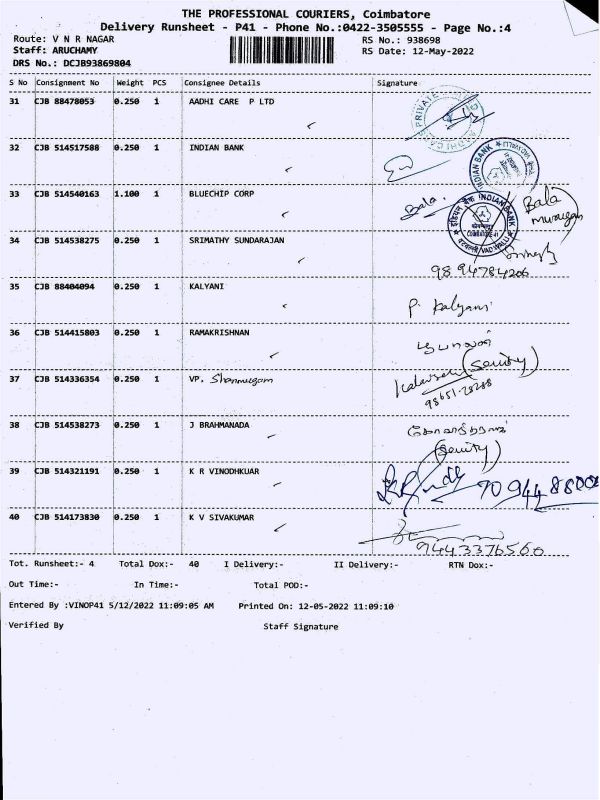 THE PROFESSIONAL COURIERS, Coimbatore
Delivery Runsheet - P41 - Phone No.:0422-3505555 - Page No.:4
Route: V N R NAGAR RS No.: 938698
Staff: ARUCHAMY RS Date: 12-May-2022
DRS No.: DCJB93869804
S No Consignment No Weight PCS Consignee Details Signature
31 CJB 88478053 0.250 1 AADHI CARE P LTD
PRIVATE
AADHI CARE
32 CJB 514517588 0.250 1 INDIAN BANK
INDIAN BANK
33 CJB 514540163 1.100 1 BLUECHIP CORP Bala.
Bala
murugan
इंडियन बैंक INDIAN BANK
34 CJB 514538275 0.250 1 SRIMATHY SUNDARAJAN
9894784206
35 CJB 88404094 0.250 1 KALYANI
P. Kalyani
36 CJB 514415803 0.250 1 RAMAKRISHNAN
37 CJB 514336354 0.250 1 VP. Shanmugam
98651-28288
38 CJB 514538273 0.250 1 J BRAHMANADA
39 CJB 514321191 0.250 1 K R VINODHKUAR
40 CJB 514173830 0.250 1 K V SIVAKUMAR
9443376560
Tot. Runsheet:- 4 Total Dox:- 40 I Delivery:- II Delivery:- RTN Dox:-
Out Time:- In Time:- Total POD:-
Entered By :VINOP41 5/12/2022 11:09:05 AM Printed On: 12-05-2022 11:09:10
Verified By Staff Signature